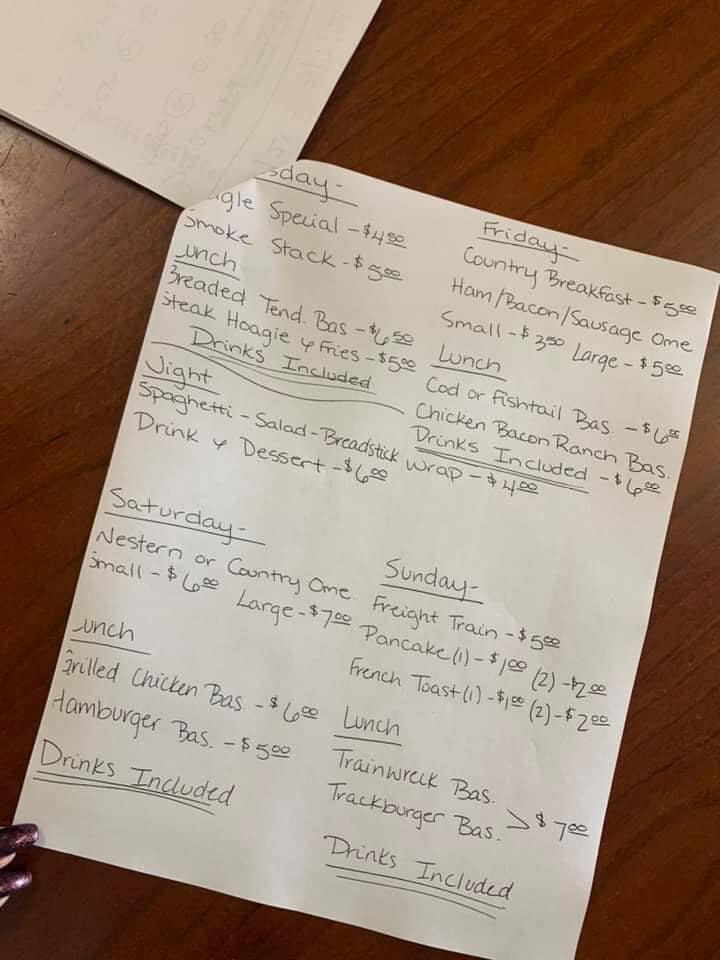 sday-
gle Special - $4.50
Smoke Stack - $5.00
unch
Breaded Tend. Bas - $6.50
Steak Hoagie & Fries - $5.00
Drinks Included
Night
Spaghetti - Salad - Breadstick
Drink & Dessert - $6.00
Friday-
Country Breakfast - $5.00
Ham/Bacon/Sausage Ome
Small - $3.50 Large - $5.00
Lunch
Cod or fishtail Bas. - $6.00
Chicken Bacon Ranch Bas. - $6.00
Wrap - $4.00
Drinks Included
Saturday-
Western or Country Ome.
Small - $6.00 Large - $7.00
unch
Grilled Chicken Bas. - $6.00
Hamburger Bas. - $5.00
Drinks Included
Sunday-
Freight Train - $5.00
Pancake (1) - $1.00 (2) - $2.00
French Toast (1) - $1.00 (2) - $2.00
Lunch
Trainwreck Bas.
Trackburger Bas. > $7.00
Drinks Included